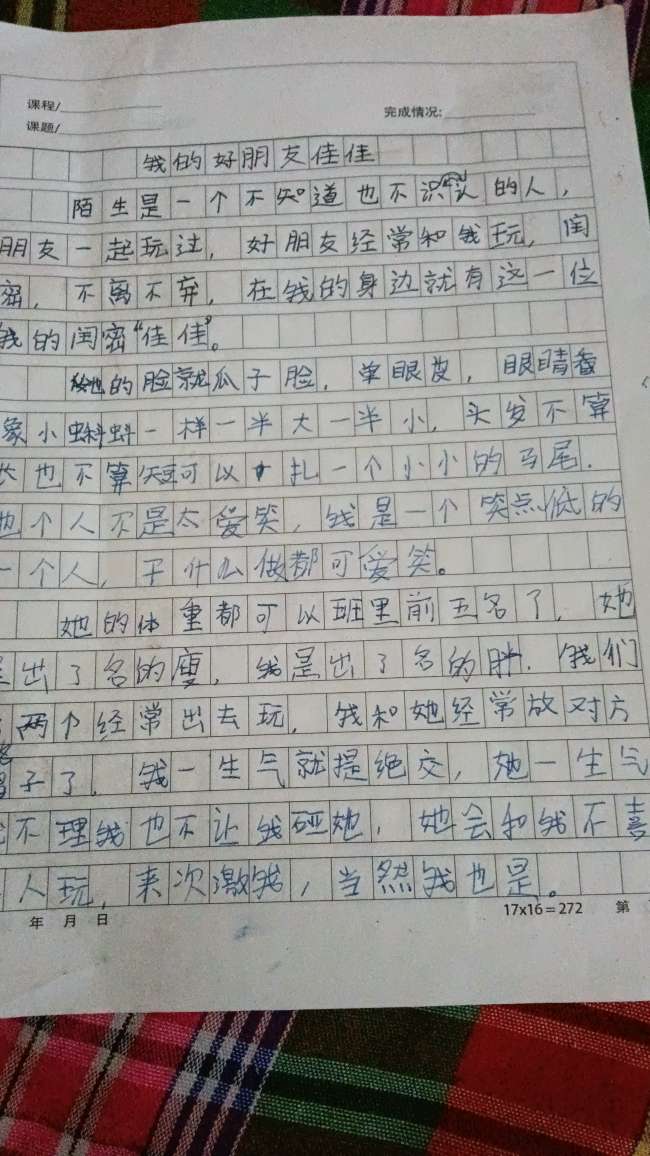 课程/
课题/
完成情况:
我的好朋友佳佳
陌生是一个不知道也不识的人,
朋友一起玩过,好朋友经常和我玩,闺
密,不离不弃,在我的身边就有这一位
我的闺密“佳佳”。
她的脸就瓜子脸,单眼皮,眼睛
象小蝌蚪一样一半大一半小,头发不算
长也不算短可以扎一个小小的马尾.
她个人不是太爱笑,我是一个笑点低的
一个人,干什么做都可爱笑。
她的体重都可以班里前五名了,她
是出了名的瘦,我是出了名的胖.我们
两个经常出去玩,我和她经常放对方
子了.我一生气就提绝交,她一生气
不理我也不让我碰她,她会和我不喜
人玩,来次激我,当然我也是。
年 月 日
17x16=272 第